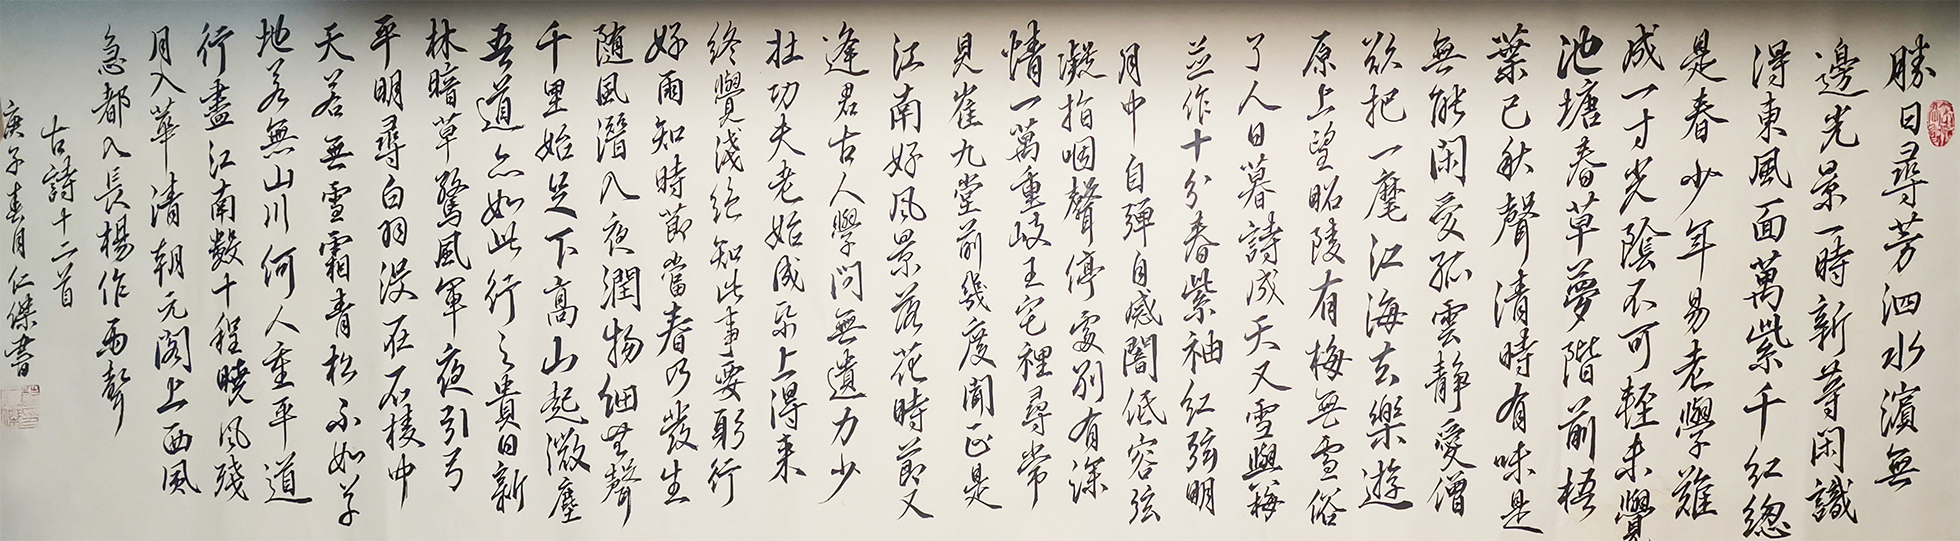 勝日尋芳泗水濱無
邊光景一時新等閑識
得東風面萬紫千紅總
是春少年易老學難
成一寸光陰不可輕未覺
池塘春草夢階前梧
葉已秋聲清時有味是
無能閑愛孤雲靜愛僧
欲把一麾江海去樂遊
原上望昭陵有梅無雪俗
了人日暮詩成天又雪與梅
並作十分春紫袖紅弦明
月中自彈自感闇低容弦
凝指咽聲停處別有深
情一萬重岐王宅裡尋常
見崔九堂前幾度聞正是
江南好風景落花時節又
逢君古人學問無遺力少
壯功夫老始成紙上得来
終覺淺絕知此事要躬行
好雨知時節當春乃發生
随風潛入夜潤物細無聲
千里始足下高山起微塵
吾道亦如此行之貴日新
林暗草驚風軍夜引弓
平明尋白羽沒在石棱中
天若無雪霜青松不如草
地若無山川何人重平道
行盡江南數十程曉風殘
月入華清朝元閣上西風
急都入長楊作雨聲
古詩十二首
庚子春月仁傑書